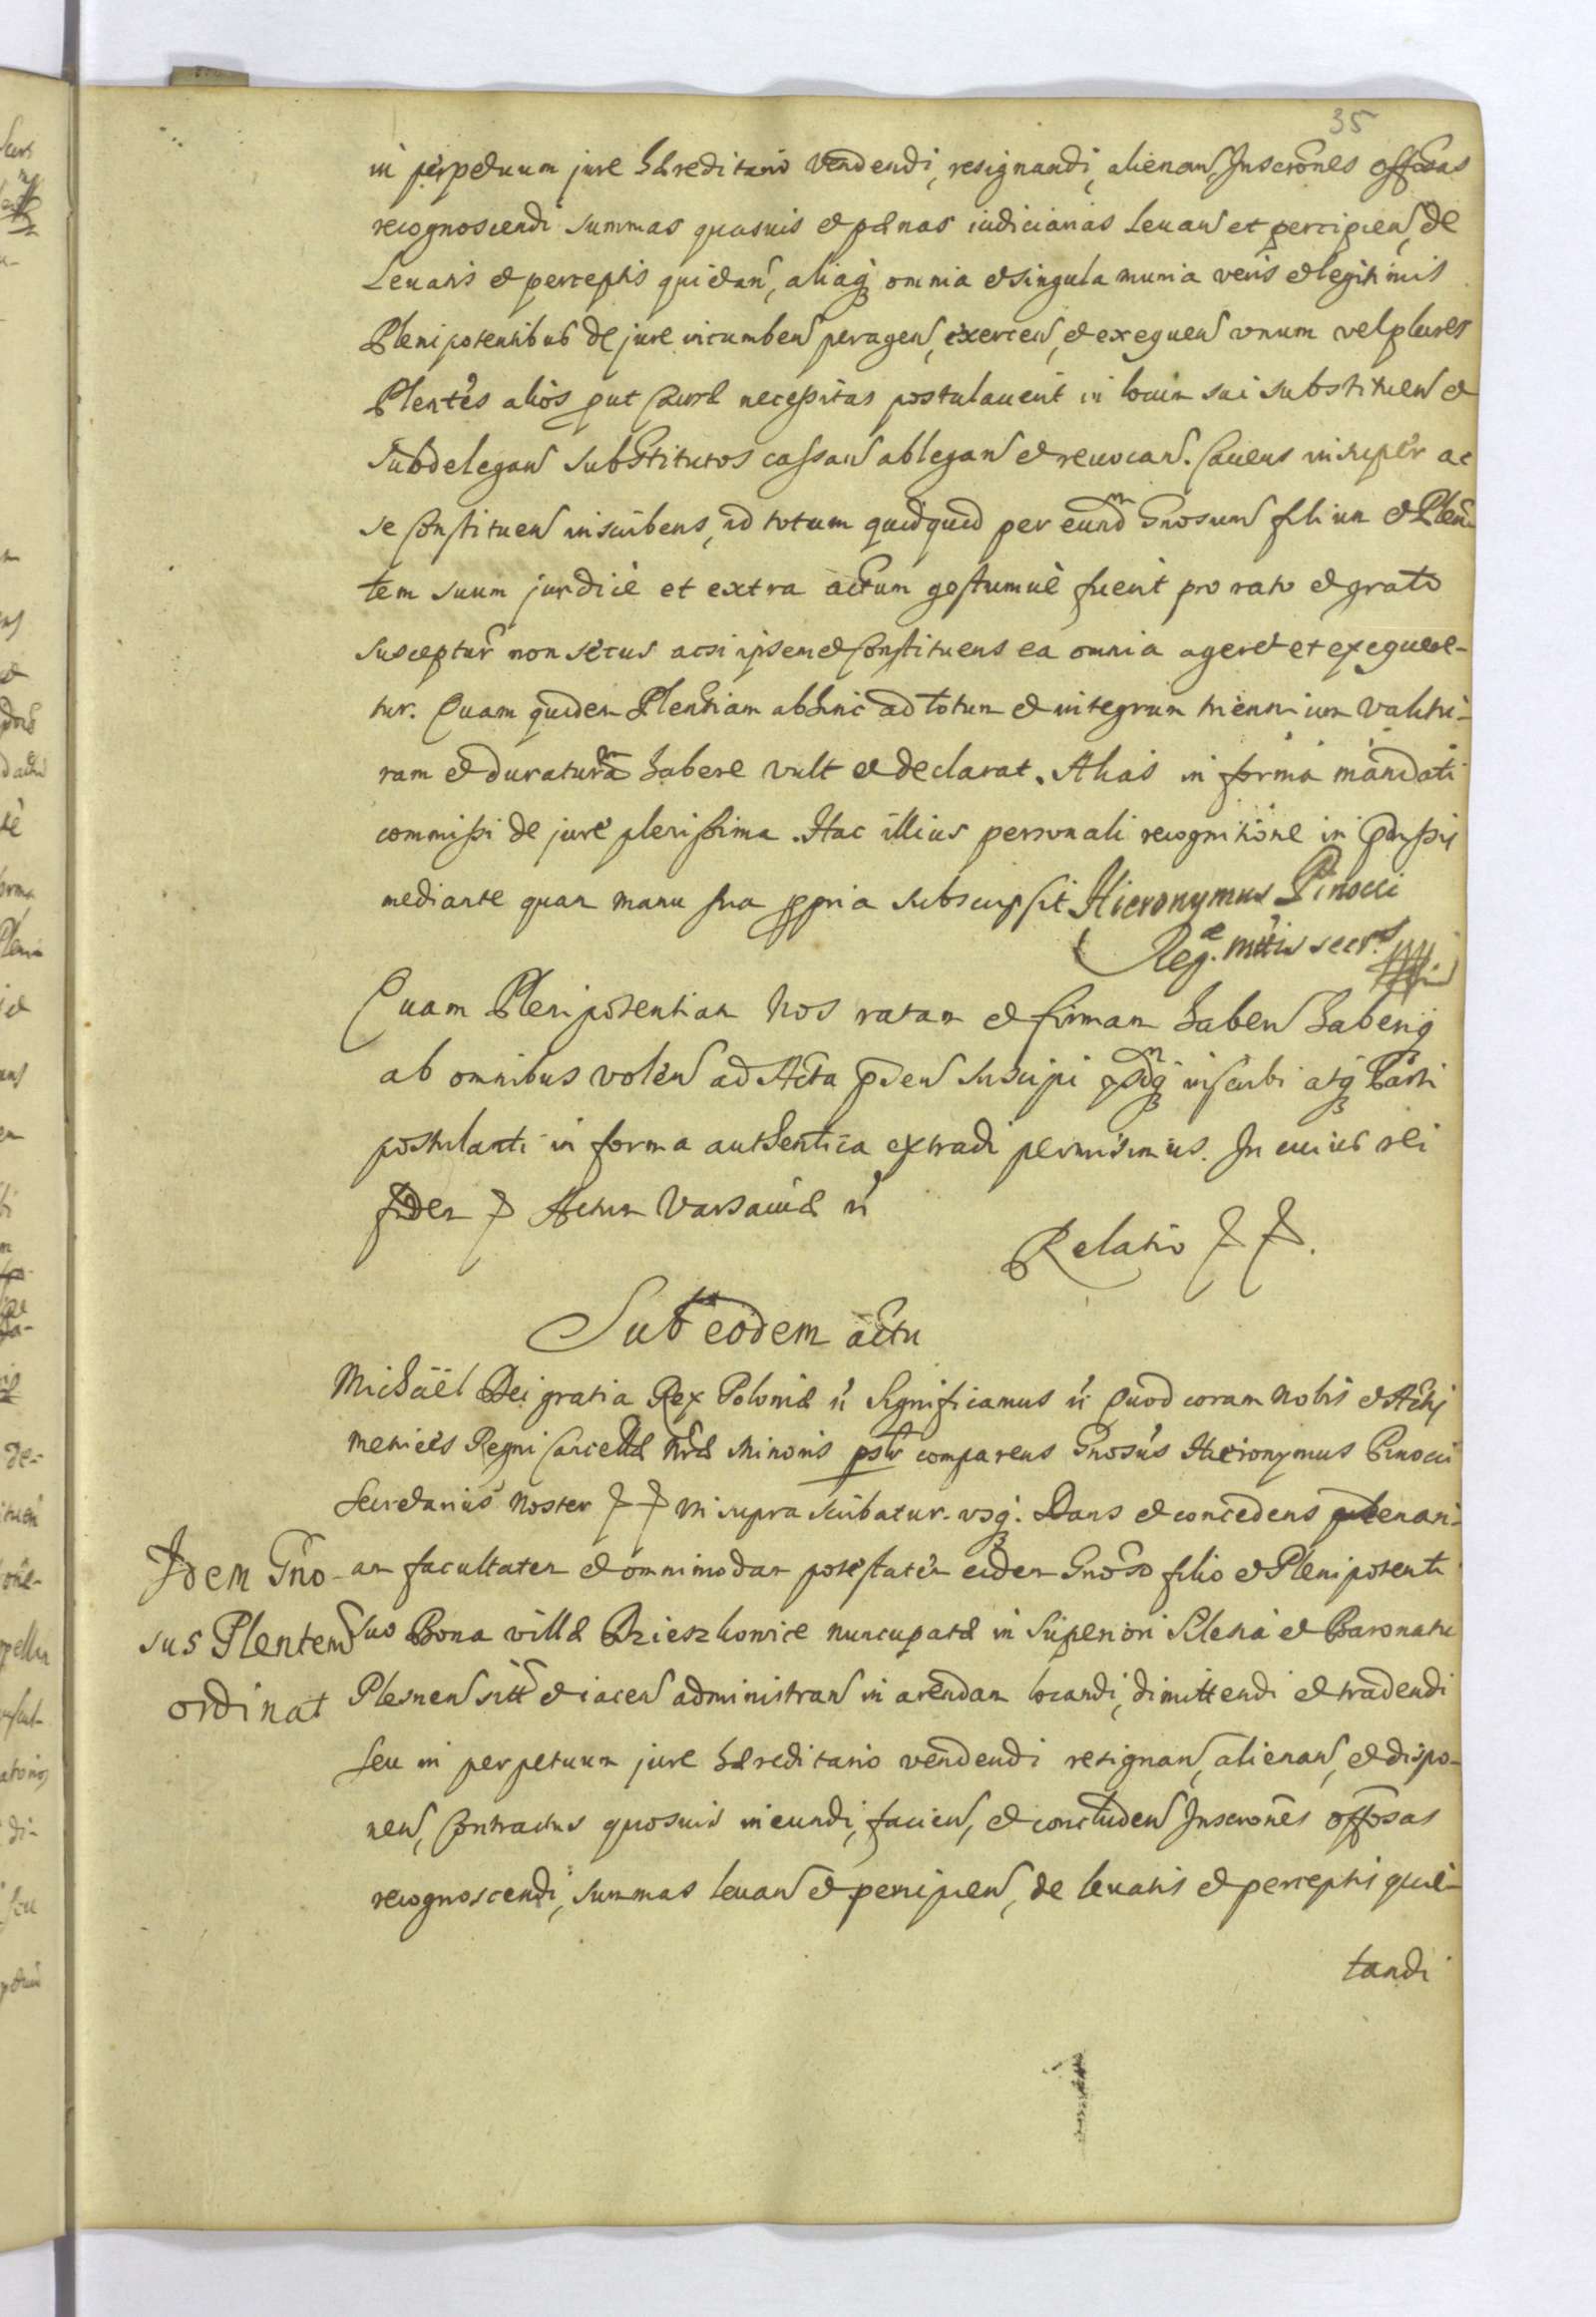 35
in perpetuum jure hæreditario vendendi, resignandi, alienan, Inscrōnes offōsas
recognoscendi summas quasuis et pænas iudiciarias leuan et percipien, de
Leuatis et perceptis quietan, aliaq omnia et singula munia veris et legitimis
Plenipotentibus de jure incumben peragen, exercen, et exequen vnum vel plures
Plentes alios put causæ necessitas postulauerit in locum sui substituen et
subdelegan substitutos cassan ablegan et reuocan. Cauens insuper ac
se Constituen inscribens, id totum quidquid per eundm Gnosum filium et Plen-
tem suum juridicè et extra actum gestumuè fuerit pro rato et grato
suscepturū non secus acsi ipsemet Constituens ea omnia ageret et exequere-
tur. Quam quidem Plentiam abhinc ad totum et integrum triennium valitu-
ram et duraturam habere vult et declarat. Alias in forma mandati
commissi de jure plenissima. Hac illius personali recognitione in præssis
mediante quam manu sua ppria subscripsit Hieronymus Pinocci
Reg. Mttis secrs
Quam Plenipotentiam Nos ratam et firmam haben haberiq
ab omnibus volen ad Acta pñen suscipi inscribi atq Parti
postulanti in forma authentica extradi permisimus. In cuius rei
fidem Actum Varsauiæ
Relatio
Sub eodem actu
Michaël Dei gratia Rex Poloniæ Significamus Quod coram Nobis et Actis
Metrices Regni Cancellæ Nræ Minoris pslr comparens Gnosus Hieronymus Pinocci
Secretarius Noster uti supra scribatur. vsq. Dans et concedens plenari-
Idem Gno- am facultatem et omnimodam potestatem eidem Gnoso filio et Plenipotenti
sus Plentem suo Bona villæ Brzeszkowice nuncupatæ in Superiori Silesia et Baronatu
ordinat Plesnen sitt et iacen administran in arendam locandi, dimittendi et tradendi
seu in perpetuum jure hæreditario vendendi resignan, alienan, et dispo-
nen, Contractus quosuis ineundi, facien, et concluden Inscrones offōsas
recognoscendi, summas leuan et percipien, de leuatis et perceptis quie-
tandi